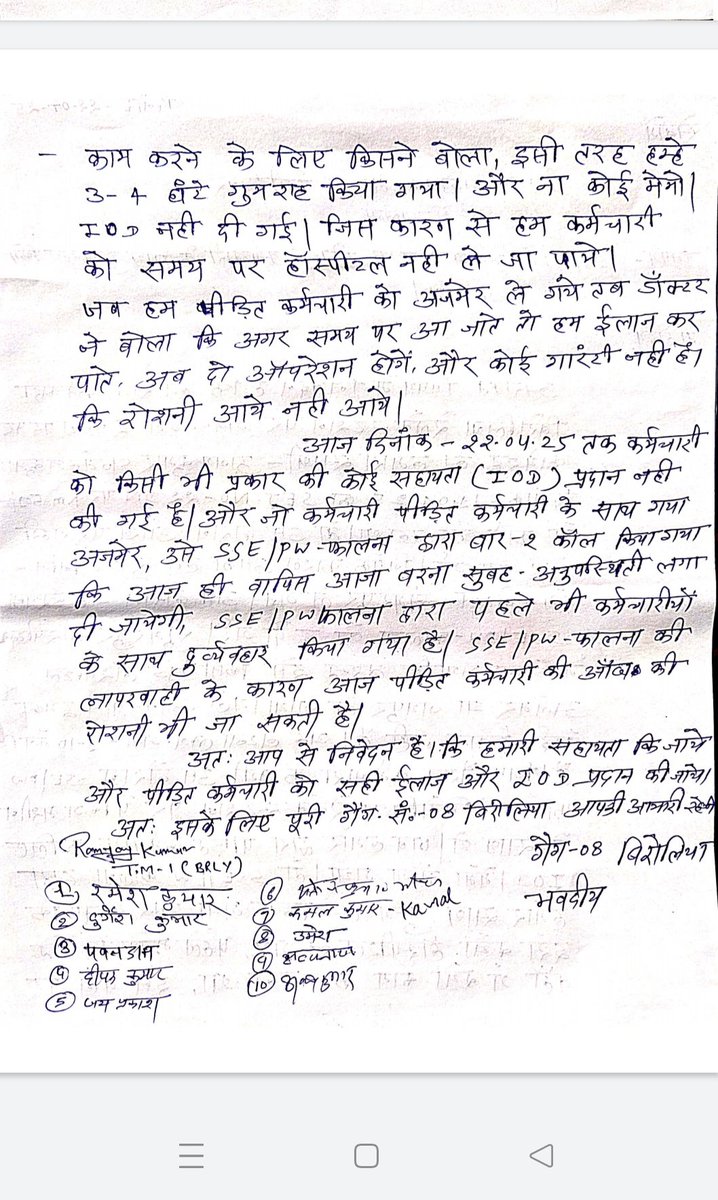 - काम करने के लिए किसने बोला, इसी तरह हम्हे
3-4 घंटे गुमराह किया गया। और ना कोई मेमो।
IOD नही दी गई। जिस कारण से हम कर्मचारी
को समय पर हॉस्पीटल नही ले जा पाये।
जब हम पीड़ित कर्मचारी को अजमेर ले गये तब डॉक्टर
ने बोला कि अगर समय पर आ जाते तो हम ईलाज कर
पाते. अब दो ऑपरेशन होगें. और कोई गारंटी नही है।
कि रोशनी आये नही आये।
आज दिनांक - 22.04.25 तक कर्मचारी
को किसी भी प्रकार की कोई सहायता (IOD) प्रदान नही
की गई है। और जो कर्मचारी पीड़ित कर्मचारी के साथ गया
अजमेर, उसे SSE/PW-फालना द्वारा बार-2 कॉल किया गया
कि आज ही वापिस आजा वरना सुबह - अनुपस्थिती लगा
दी जायेगी, SSE/PW फालना द्वारा पहले भी कर्मचारीयों
के साथ दुर्व्यवहार किया गया है। SSE/PW-फालना की
लापरवाही के कारण आज पीड़ित कर्मचारी की आँख की
रोशनी भी जा सकती है।
अतः आप से निवेदन है। कि हमारी सहायता कि जाये
और पीड़ित कर्मचारी को सही ईलाज और IOD प्रदान की जाये।
अतः इसके लिए पूरी गैंग सं.-08 बिरोलिया आपकी आभारी रहेगी
गैंग-08 बिरोलिया
भवदीय
Kumar
TM-1 (BRLY)
① रमेश कुमार
② दुर्गेश कुमार
③ पवन
④ दीपक कुमार
⑤ जय प्रकाश
⑥
⑦ कमल कुमार -
⑧ उमेश
⑨
⑩